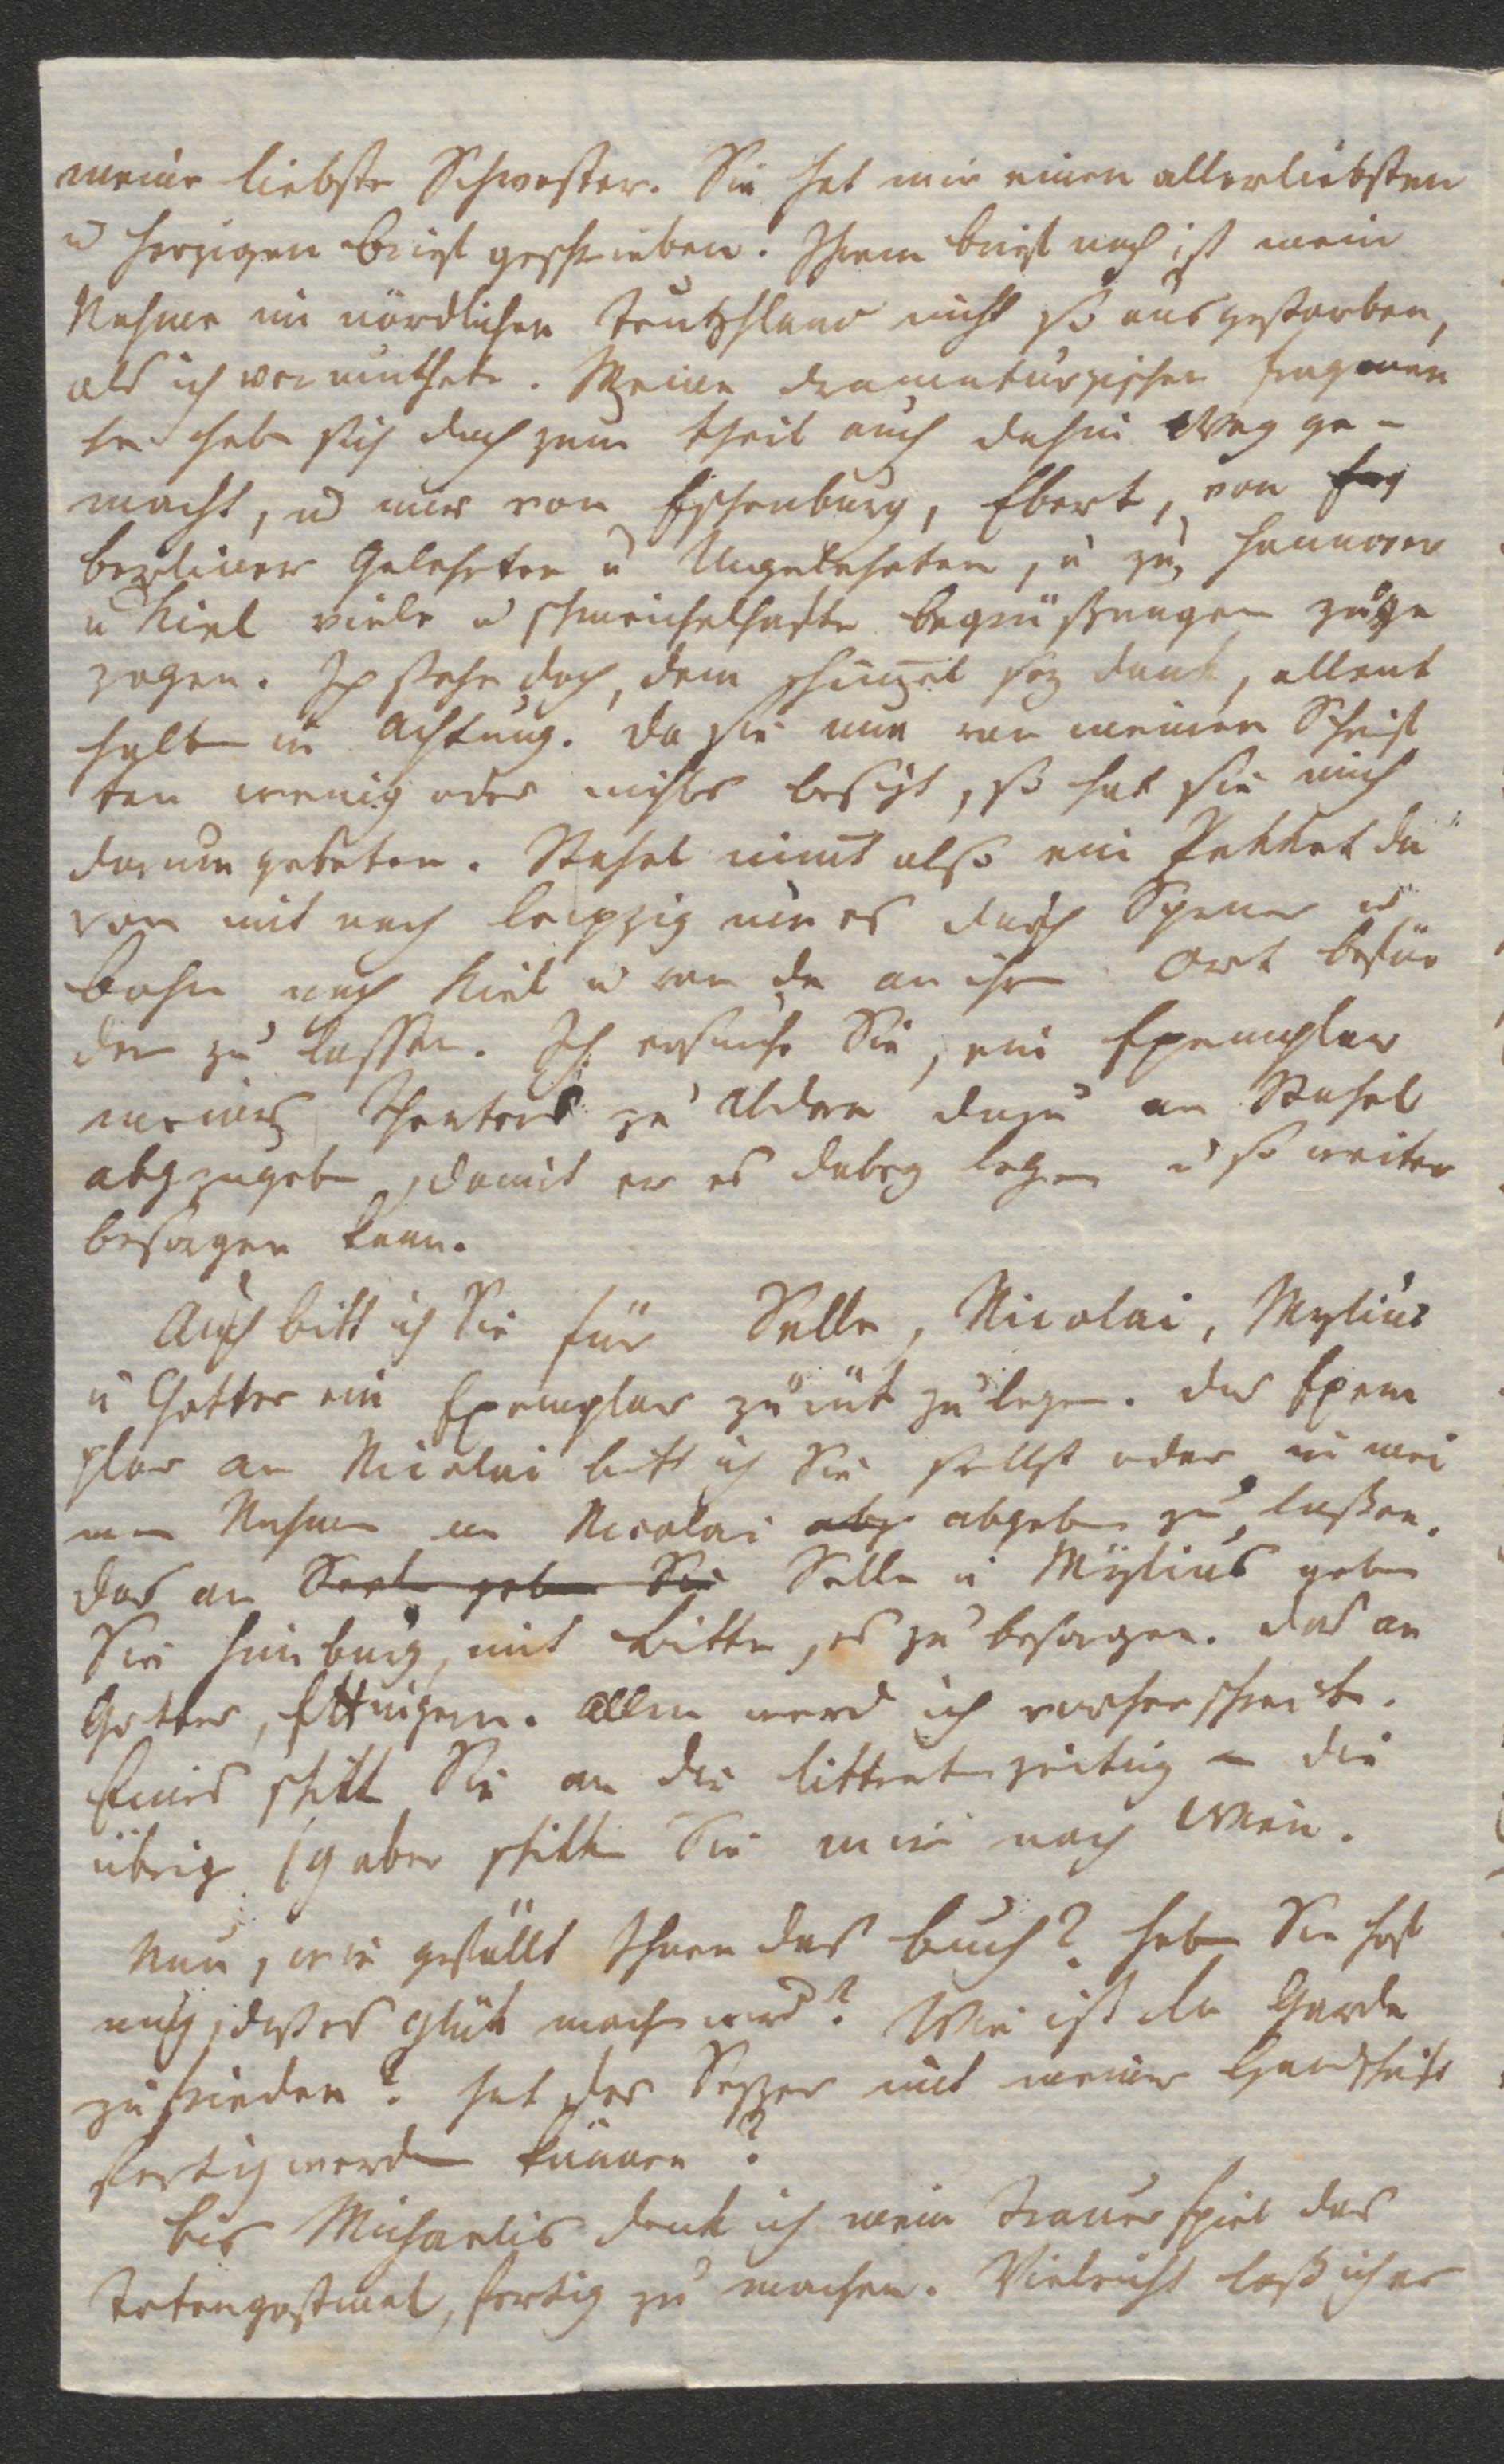 meine liebste Schwester. Sie hat mir einen allerliebsten
u herzigen Brief geschrieben. Ihrem Brief nach ist mein
Nahme im nördlichen Teutschland nicht so ausgestorben,
als ich vermuthete. Meine dramaturgischen Fragmen
te habe sich doch zum Theil auch dahin Weg ge-
macht, u mir von Eschenburg, Ebert, von
berliner Gelehrten u Ungelehrten, u zu Hannover
u Kiel viele u schmeichelhafte Begrüßungen zuge
zogen. Ich stehe doch, dem Himel sey Dank, allent
halb in Achtung. Da sie nun von meinen Schrif
ten wenig oder nichts besizt, so hat sie mich
darum gebeten. Stahel nimt also ein Pakket da
von mit nach Leipzig um es durch Spener u
Bohn nach Kiel u von da an ihr Ort beför
dern zu lassen. Ich ersuche Sie, ein Exemplar
meines Theaters zu dazu an Stahel
abzugeben, damit er es dabey legen u so weiter
besorgen kann.
Auch bitt ich Sie für Selle, Nicolai, Mylius
u Gotter ein Exemplar zurük zu legen. Das Exem
plar an Nicolai bitt ich Sie selbst oder in mei
nem Nahmen an Nicolai abg abgeben zu laßen.
das an geben Sie Selle u Mylius geben
Sie Himburg, mit Bitte, es zu besorgen. Das an
Gotter, Ettingern. Allen werd ich vorher schreiben.
Eines schikt Sie an die Litteraturzeitung – die
übrig 19 aber schikken Sie mir nach Wien.
Nun, wie gefällt Ihnen das Buch? haben Sie Hof
nung, daß es Glük machen wird? Wie ist der Garde
zufrieden? hat der Sezzer mit meiner Handschrift
fertig werden können?
Bis Michaelis denk ich mein Trauerspiel das
Totengastmal, fertig zu machen. Vieleicht laß ich es